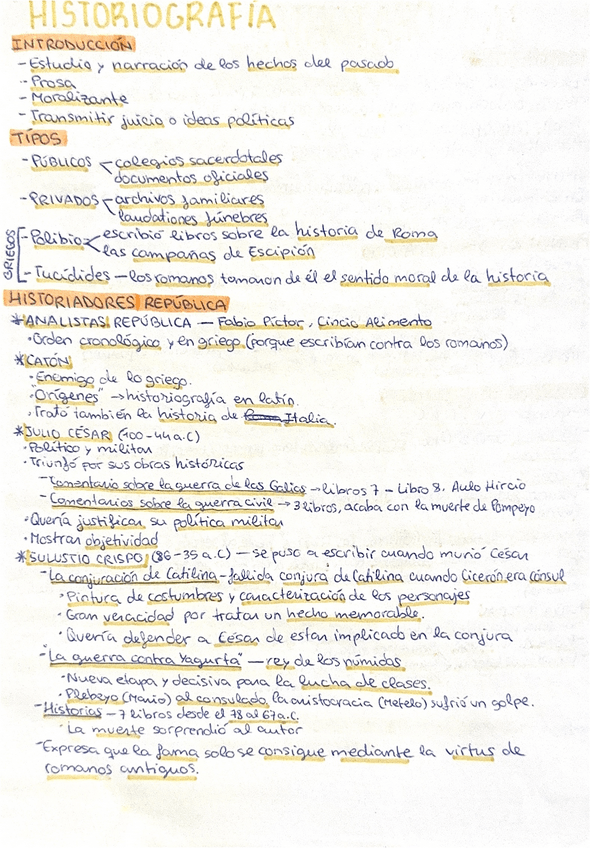 HISTORIOGRAFÍA
INTRODUCCIÓN
- Estudio y narración de los hechos del pasado
- Prosa
- Moralizante
- Transmitir juicio o ideas políticas
TIPOS
- PÚBLICOS colegios sacerdotales
documentos oficiales
- PRIVADOS archivos familiares
laudationes fúnebres
GRIEGOS
- Polibio escribió libros sobre la historia de Roma
las campañas de Escipión
- Tucídides — los romanos tomaron de él el sentido moral de la historia
HISTORIADORES REPÚBLICA
* ANALISTAS REPÚBLICA — Fabio Píctor, Cincio Alimento
· Orden cronológico y en griego (porque escribían contra los romanos)
* CATÓN
· Enemigo de lo griego.
· "Orígenes" → historiografía en latín.
· Trató también la historia de Italia.
* JULIO CÉSAR (100-44 a.C)
· Político y militar
· Triunfó por sus obras históricas
- Comentario sobre la guerra de las Galias → libros 7 - Libro 8, Aulo Hircio
- Comentarios sobre la guerra civil → 3 libros, acaba con la muerte de Pompeyo
· Quería justificar su política militar
· Mostrar objetividad
* SULUSTIO CRISPO (86-35 a.C) — se puso a escribir cuando murió César
- La conjuración de Catilina - fallida conjura de Catilina cuando Cicerón era cónsul
· Pintura de costumbres y caracterización de los personajes
· Gran veracidad por tratar un hecho memorable.
· Quería defender a César de estar implicado en la conjura
- "La guerra contra Yagurta" — rey de los númidas
· Nueva etapa y decisiva para la lucha de clases.
· Plebeyo (Mario) al consulado, la aristocracia (Metelo) sufrió un golpe.
- Historias - 7 libros desde el 78 al 67 a.C.
· La muerte sorprendió al autor
- Expresa que la fama solo se consigue mediante la virtus de
romanos antiguos.